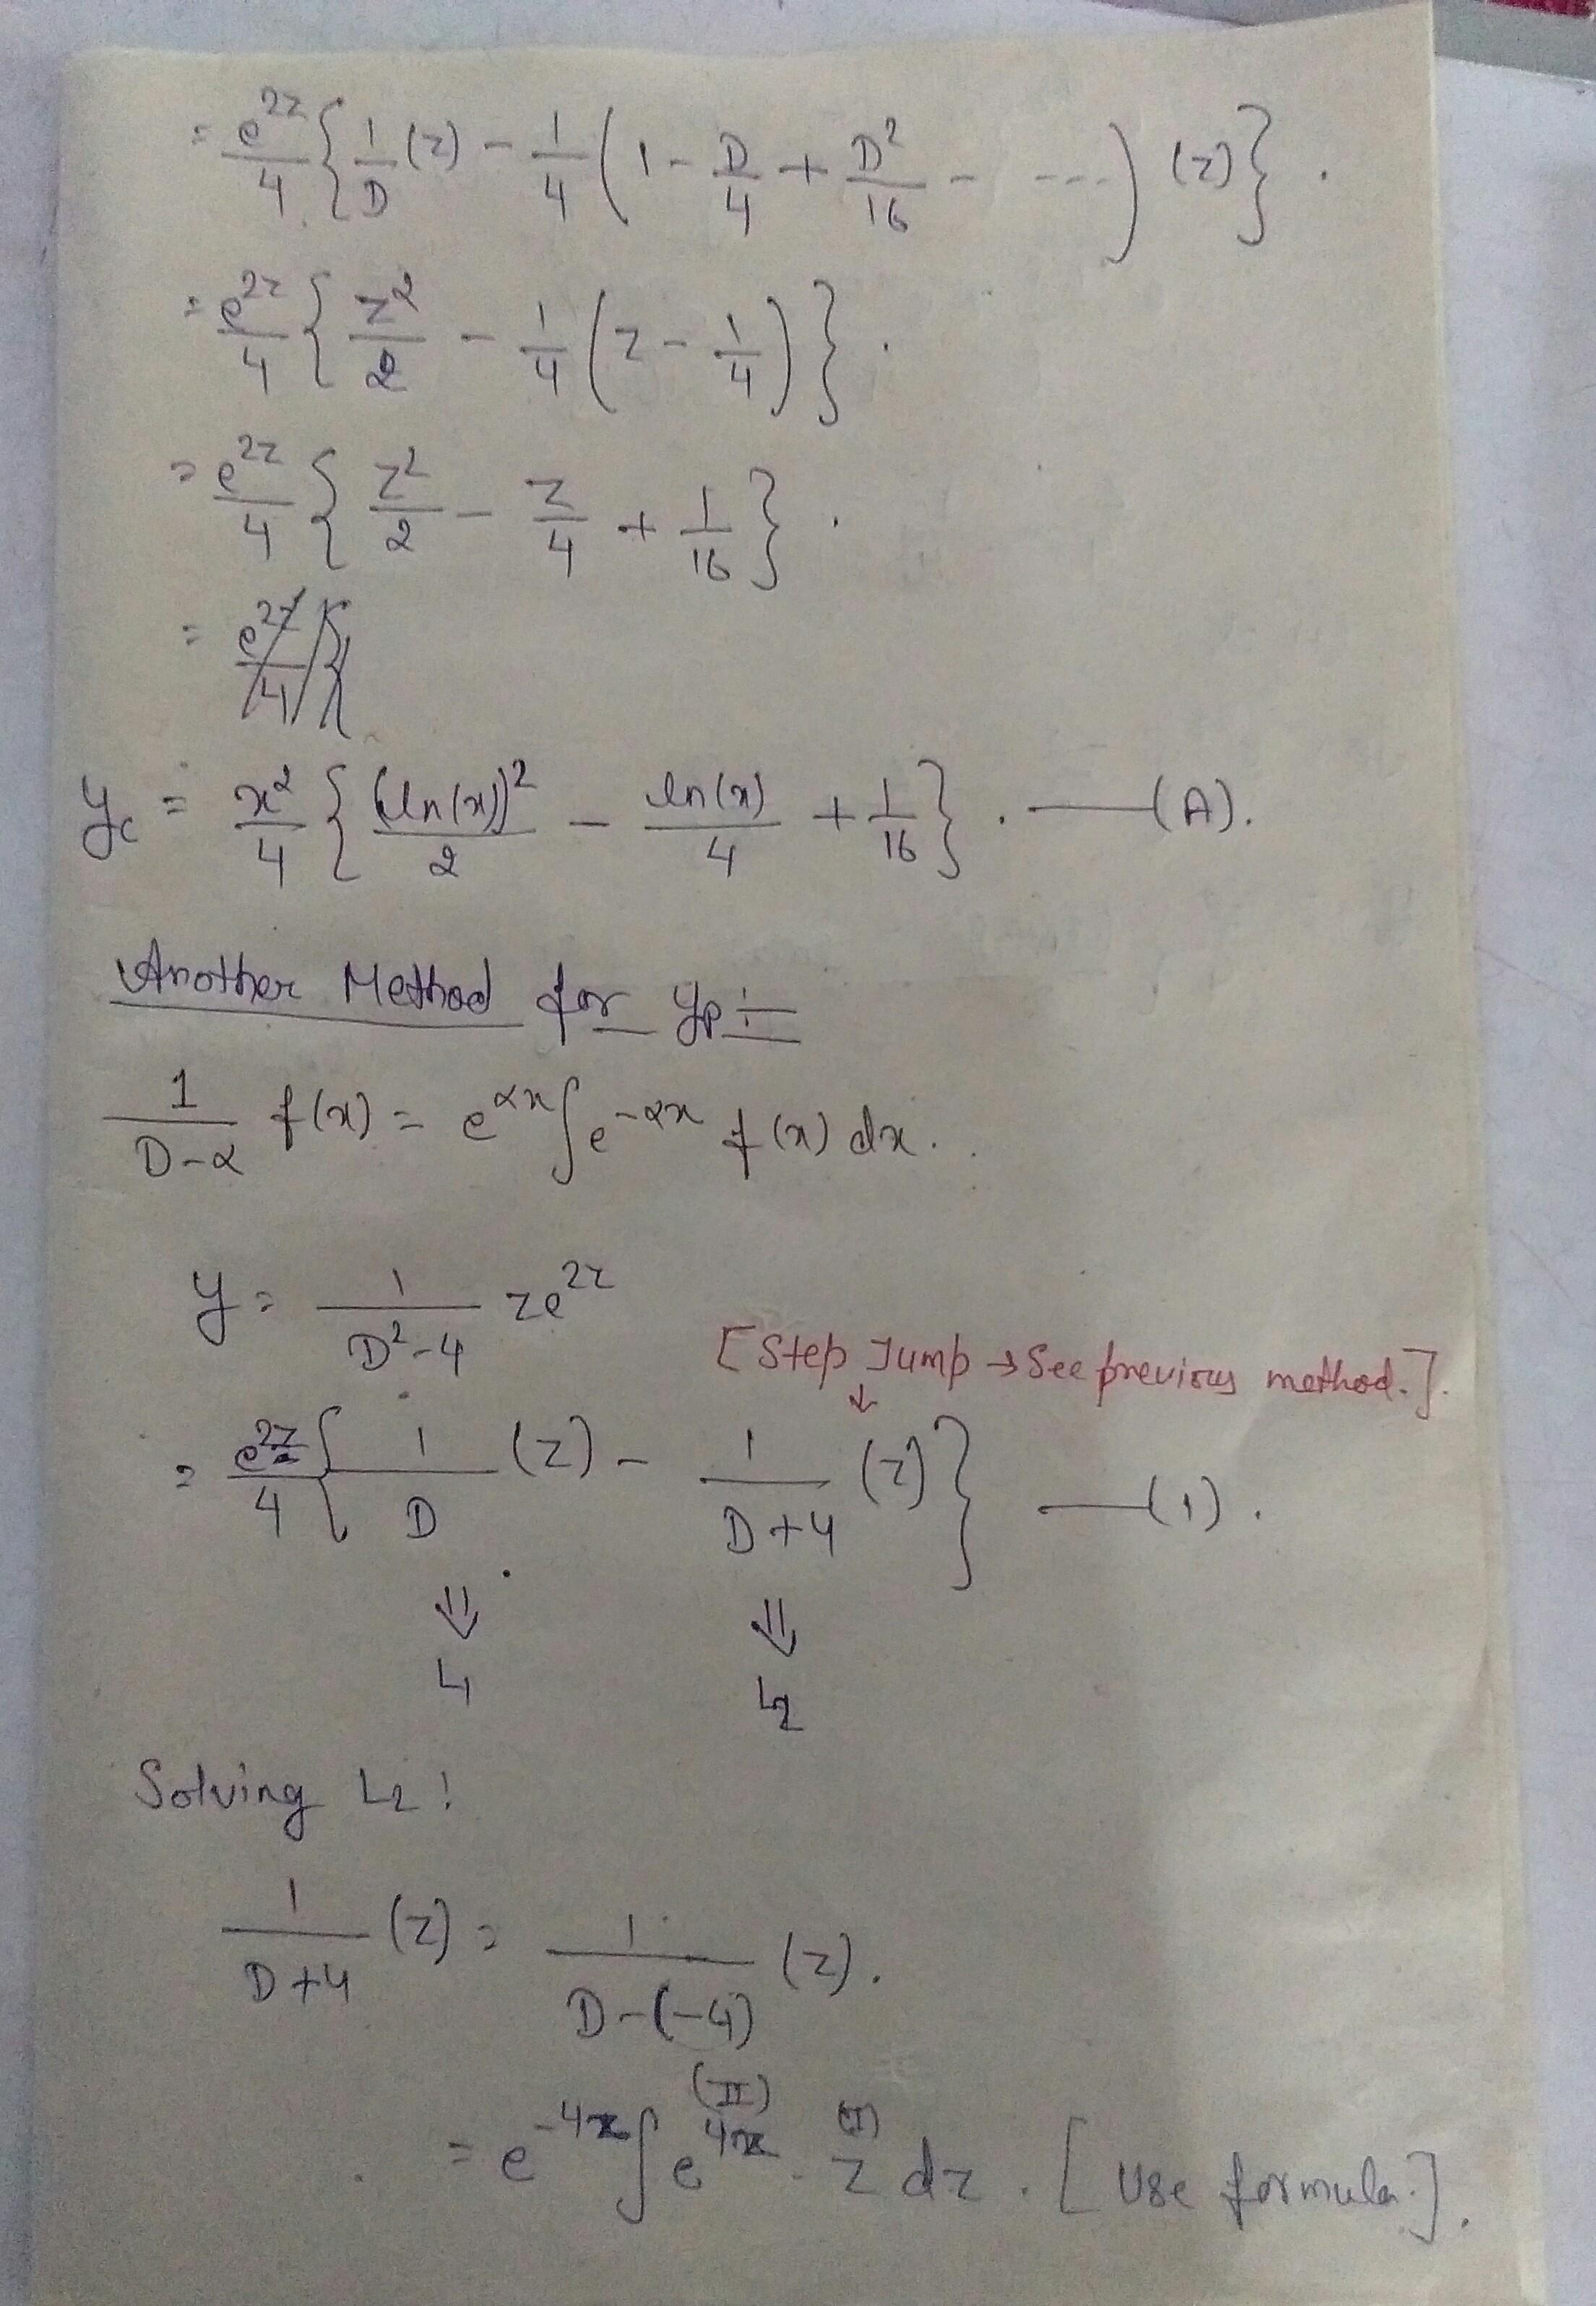 = e^{2z}/4 { 1/D (z) - 1/4 ( 1 - D/4 + D²/16 - ---- ) (z) } .
= e^{2z}/4 { z²/2 - 1/4 ( z - 1/4 ) } .
= e^{2z}/4 { z²/2 - z/4 + 1/16 } .
= e^{2z}/4 {
y_c = x²/4 { (ln(x))²/2 - ln(x)/4 + 1/16 } . —(A).
Another Method for yp :-
1/(D-α) f(x) = e^{αx} ∫ e^{-αx} f(x) dx.
y = 1/(D²-4) ze^{2z}
[Step Jump → See previous method.].
↓
= e^{2z}/4 { 1/D (z) - 1/(D+4) (z) } —(1).
⇓ ⇓
L1 L2
Solving L2 :
1/(D+4) (z) = 1/(D-(-4)) (z).
(II) (I)
= e^{-4z} ∫ e^{4z} . z dz . [Use formula.].